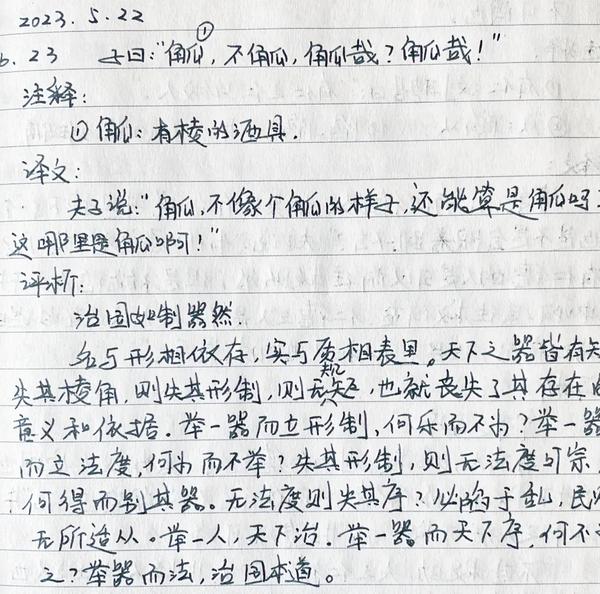 2023.5.22
6.23 子曰:“觚①,不觚,觚哉?觚哉!”
注释:
①觚:有棱的酒具.
译文:
夫子说:“觚,不像个觚的样子,还能算是觚吗?
这哪里是觚啊!”
评析:
治国如制器然.
名与形相依存,实与质相表里。天下之器皆有
失其棱角,则失其形制,则无规矩,也就丧失了其存在的
意义和依据.举一器而立形制,何乐而不为?举一器
而立法度,何为而不举?失其形制,则无法度可宗,
何得而别其器。无法度则失其序?必陷于乱,民
无所适从。举一人,天下治.举一器而天下序,何不
之?举器而法,治国本道。